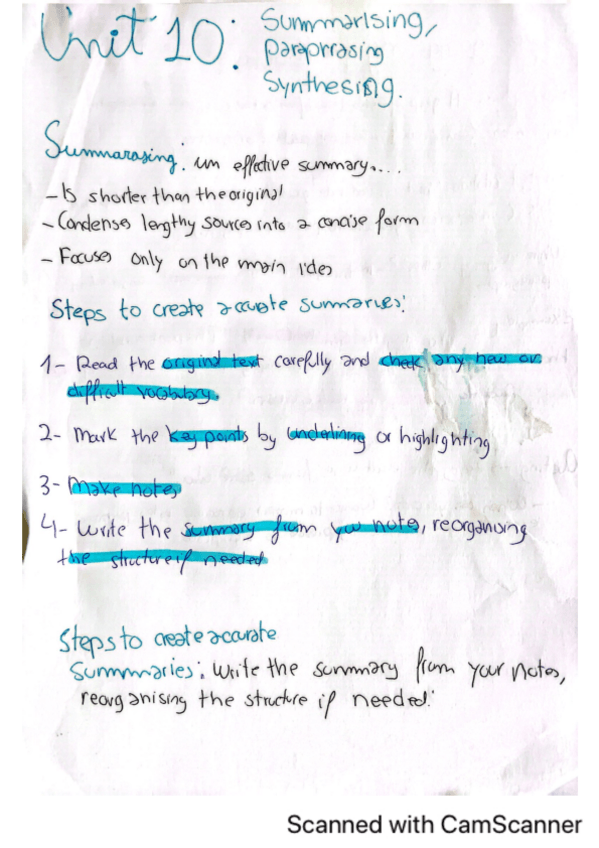 Unit 10:
Summarising,
paraprrasing
Synthesising.
Summarasing: un effective summary....
- Is shorter than the original
- Condense lengthy sources into a concise form
- Focuses only on the main idea
Steps to create accurate summaries:
1- Read the original text carefully and check any new or
difficult vocabulary.
2- Mark the key points by underlining or highlighting
3- Make notes
4- Write the summary from your notes, reorganising
the structure if needed
Steps to create accurate
Summmaries: Write the summary from your notes,
reorganising the structure if needed.
Scanned with CamScanner